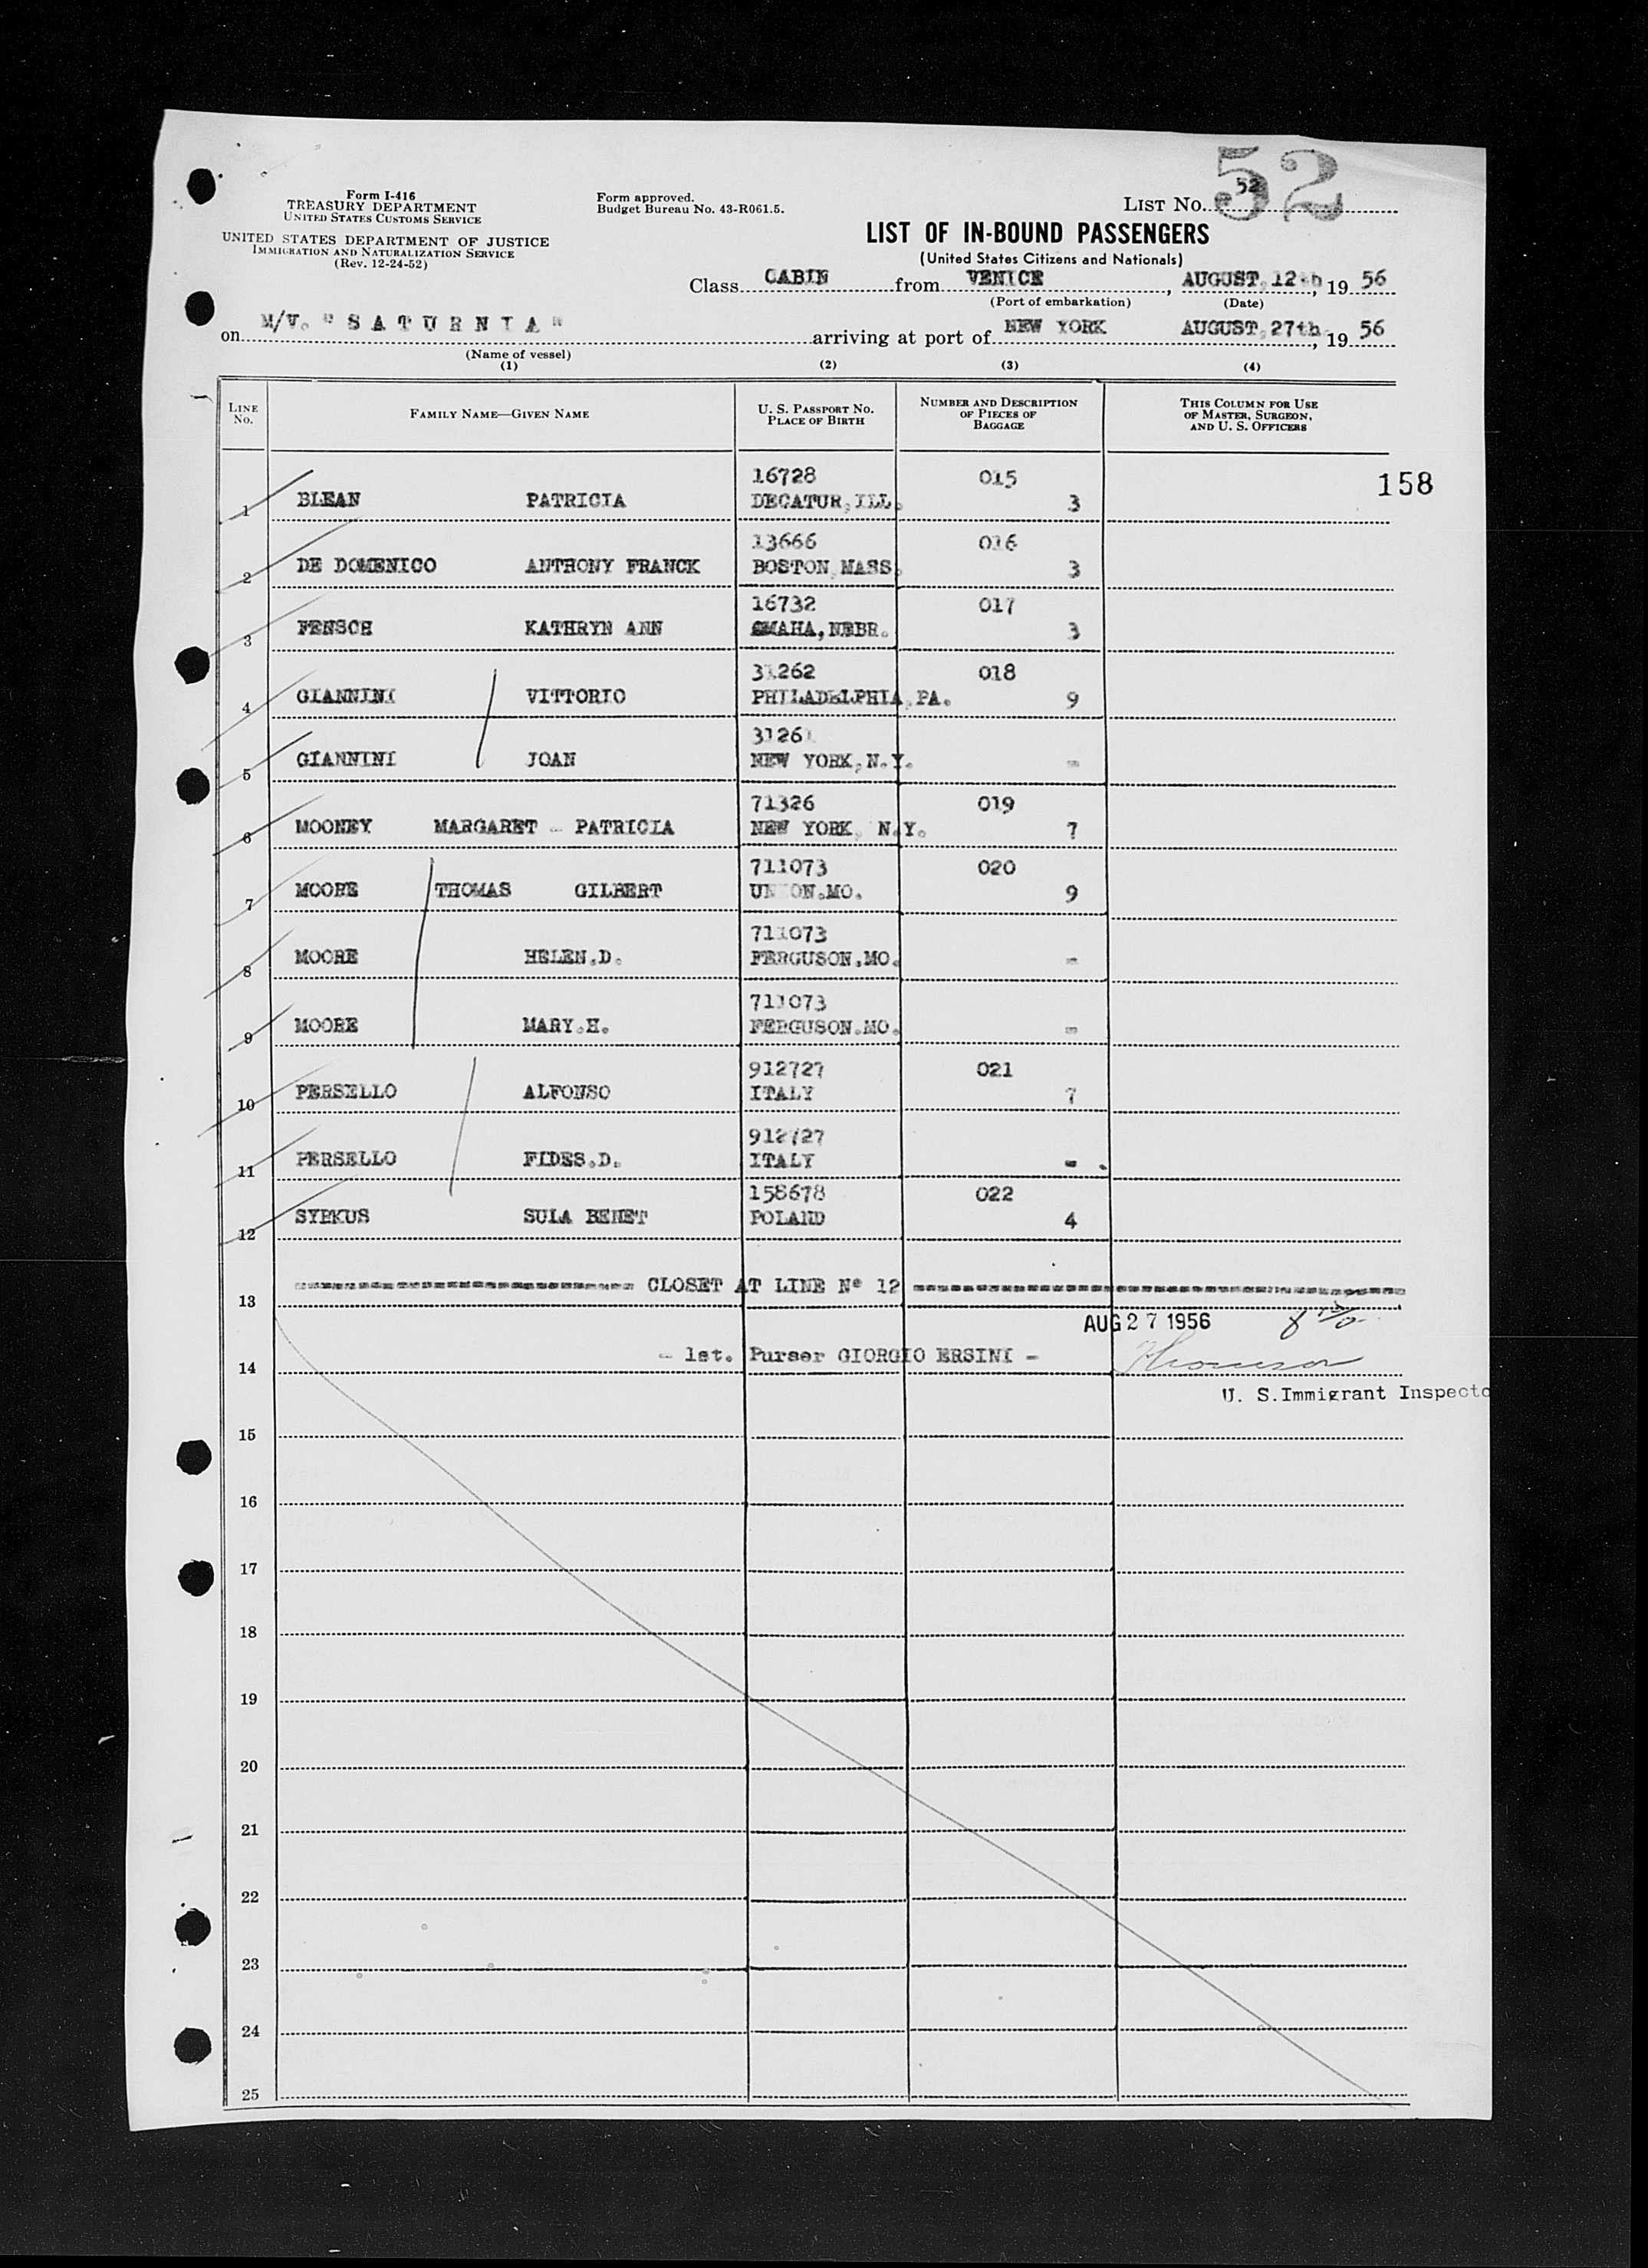 52
Form I-416
TREASURY DEPARTMENT
UNITED STATES CUSTOMS SERVICE
UNITED STATES DEPARTMENT OF JUSTICE
IMMIGRATION AND NATURALIZATION SERVICE
(Rev. 12-24-52)
Form approved.
Budget Bureau No. 43-R061.5.
LIST NO. 52
LIST OF IN-BOUND PASSENGERS
(United States Citizens and Nationals)
Class CABIN from VENICE, AUGUST, 12th, 19 56
(Port of embarkation) (Date)
on M/V. "SATURNIA" arriving at port of NEW YORK AUGUST, 27th, 19 56
(Name of vessel)
(1) (2) (3) (4)
LINE NO. FAMILY NAME—GIVEN NAME U. S. PASSPORT NO. PLACE OF BIRTH NUMBER AND DESCRIPTION OF PIECES OF BAGGAGE THIS COLUMN FOR USE OF MASTER, SURGEON, AND U. S. OFFICERS
16728 015 158
1 BLEAN PATRICIA DECATUR, ILL. 3
13666 016
2 DE DOMENICO ANTHONY FRANCK BOSTON, MASS. 3
16732 017
3 FENSCH KATHRYN ANN OMAHA, NEBR. 3
31262 018
4 GIANNINI VITTORIO PHILADELPHIA, PA. 9
31261
5 GIANNINI JOAN NEW YORK, N.Y. -
71326 019
6 MOONEY MARGARET - PATRICIA NEW YORK, N.Y. 7
711073 020
7 MOORE THOMAS GILBERT UNION.MO. 9
711073
8 MOORE HELEN.D. FERGUSON.MO. -
711073
9 MOORE MARY.H. FERGUSON.MO. -
912727 021
10 PERSELLO ALFONSO ITALY 7
912727
11 PERSELLO FIDES.D. ITALY - .
158678 022
12 SYRKUS SULA BENET POLAND 4
13 CLOSET AT LINE Nº 12
AUG 27 1956
14 - 1st. Purser GIORGIO ERSINI -
U. S.Immigrant Inspecto
15
16
17
18
19
20
21
22
23
24
25